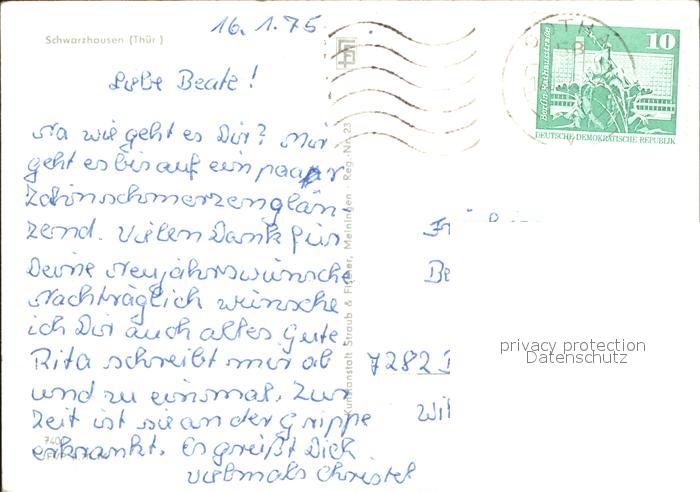 16. 1. 75
Schwarzhausen (Thür)
Liebe Beate!
Na wie geht es Dir? Mir
geht es bis auf ein paar
Zahnschmerzen glän-
zend. Vielen Dank für
Deine Neujahrswünsche
Nachträglich wünsche
ich Dir auch alles Gute
Rita schreibt mir ab
und zu einmal. Zur
Zeit ist sie an der Grippe
erkrankt. Es greißt Dich
vielmals Christel
Kunstanstalt Straub & Fischer, Meiningen · Reg.-Nr. 23
GOTHA
10
Berlin, Rathausstraße
DEUTSCHE DEMOKRATISCHE REPUBLIK
Be
7282
Wil
privacy protection
Datenschutz